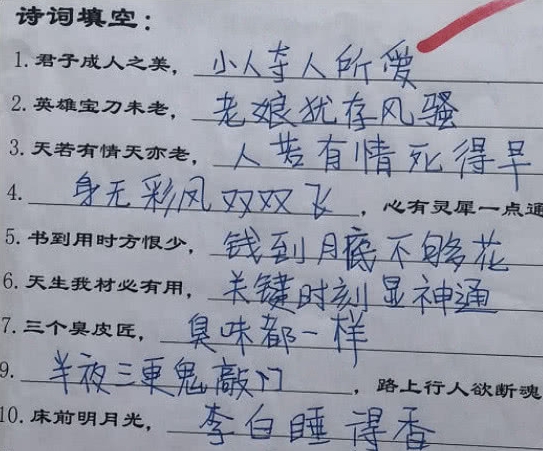 诗词填空：
1. 君子成人之美，小人夺人所爱
2. 英雄宝刀未老，老娘犹存风骚
3. 天若有情天亦老，人若有情死得早
4. 身无彩风双双飞，心有灵犀一点通
5. 书到用时方恨少，钱到月底不够花
6. 天生我材必有用，关键时刻显神通
7. 三个臭皮匠，臭味都一样
9. 半夜三更鬼敲门，路上行人欲断魂
10. 床前明月光，李白睡得香